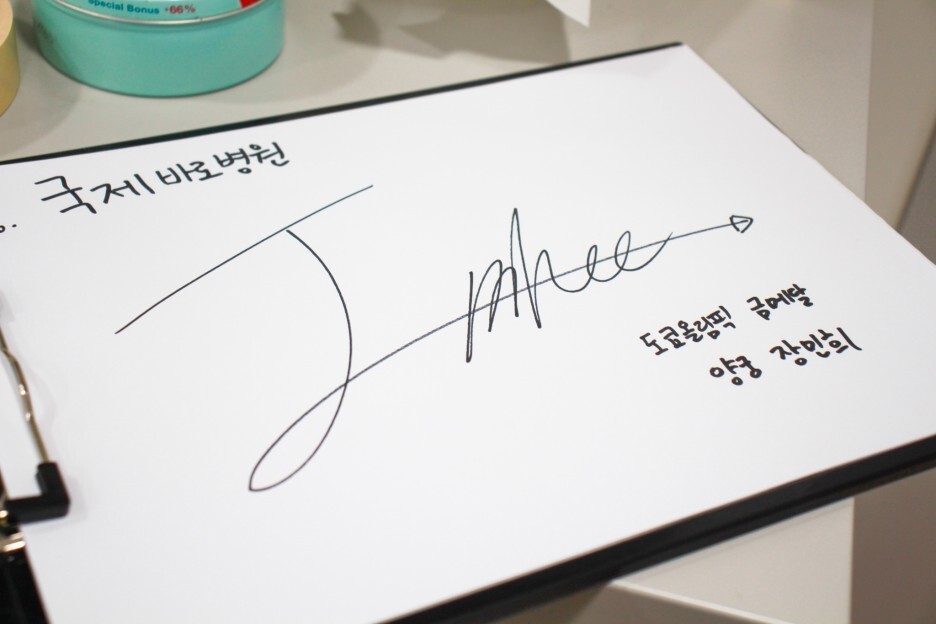 Special Bonus +66%
국제바로병원
J mhee
도쿄올림픽 금메달
양궁 장민희